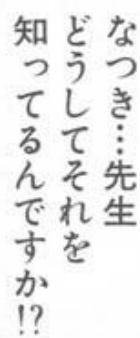 なつき…先生
どうしてそれを
知ってるんですか!?